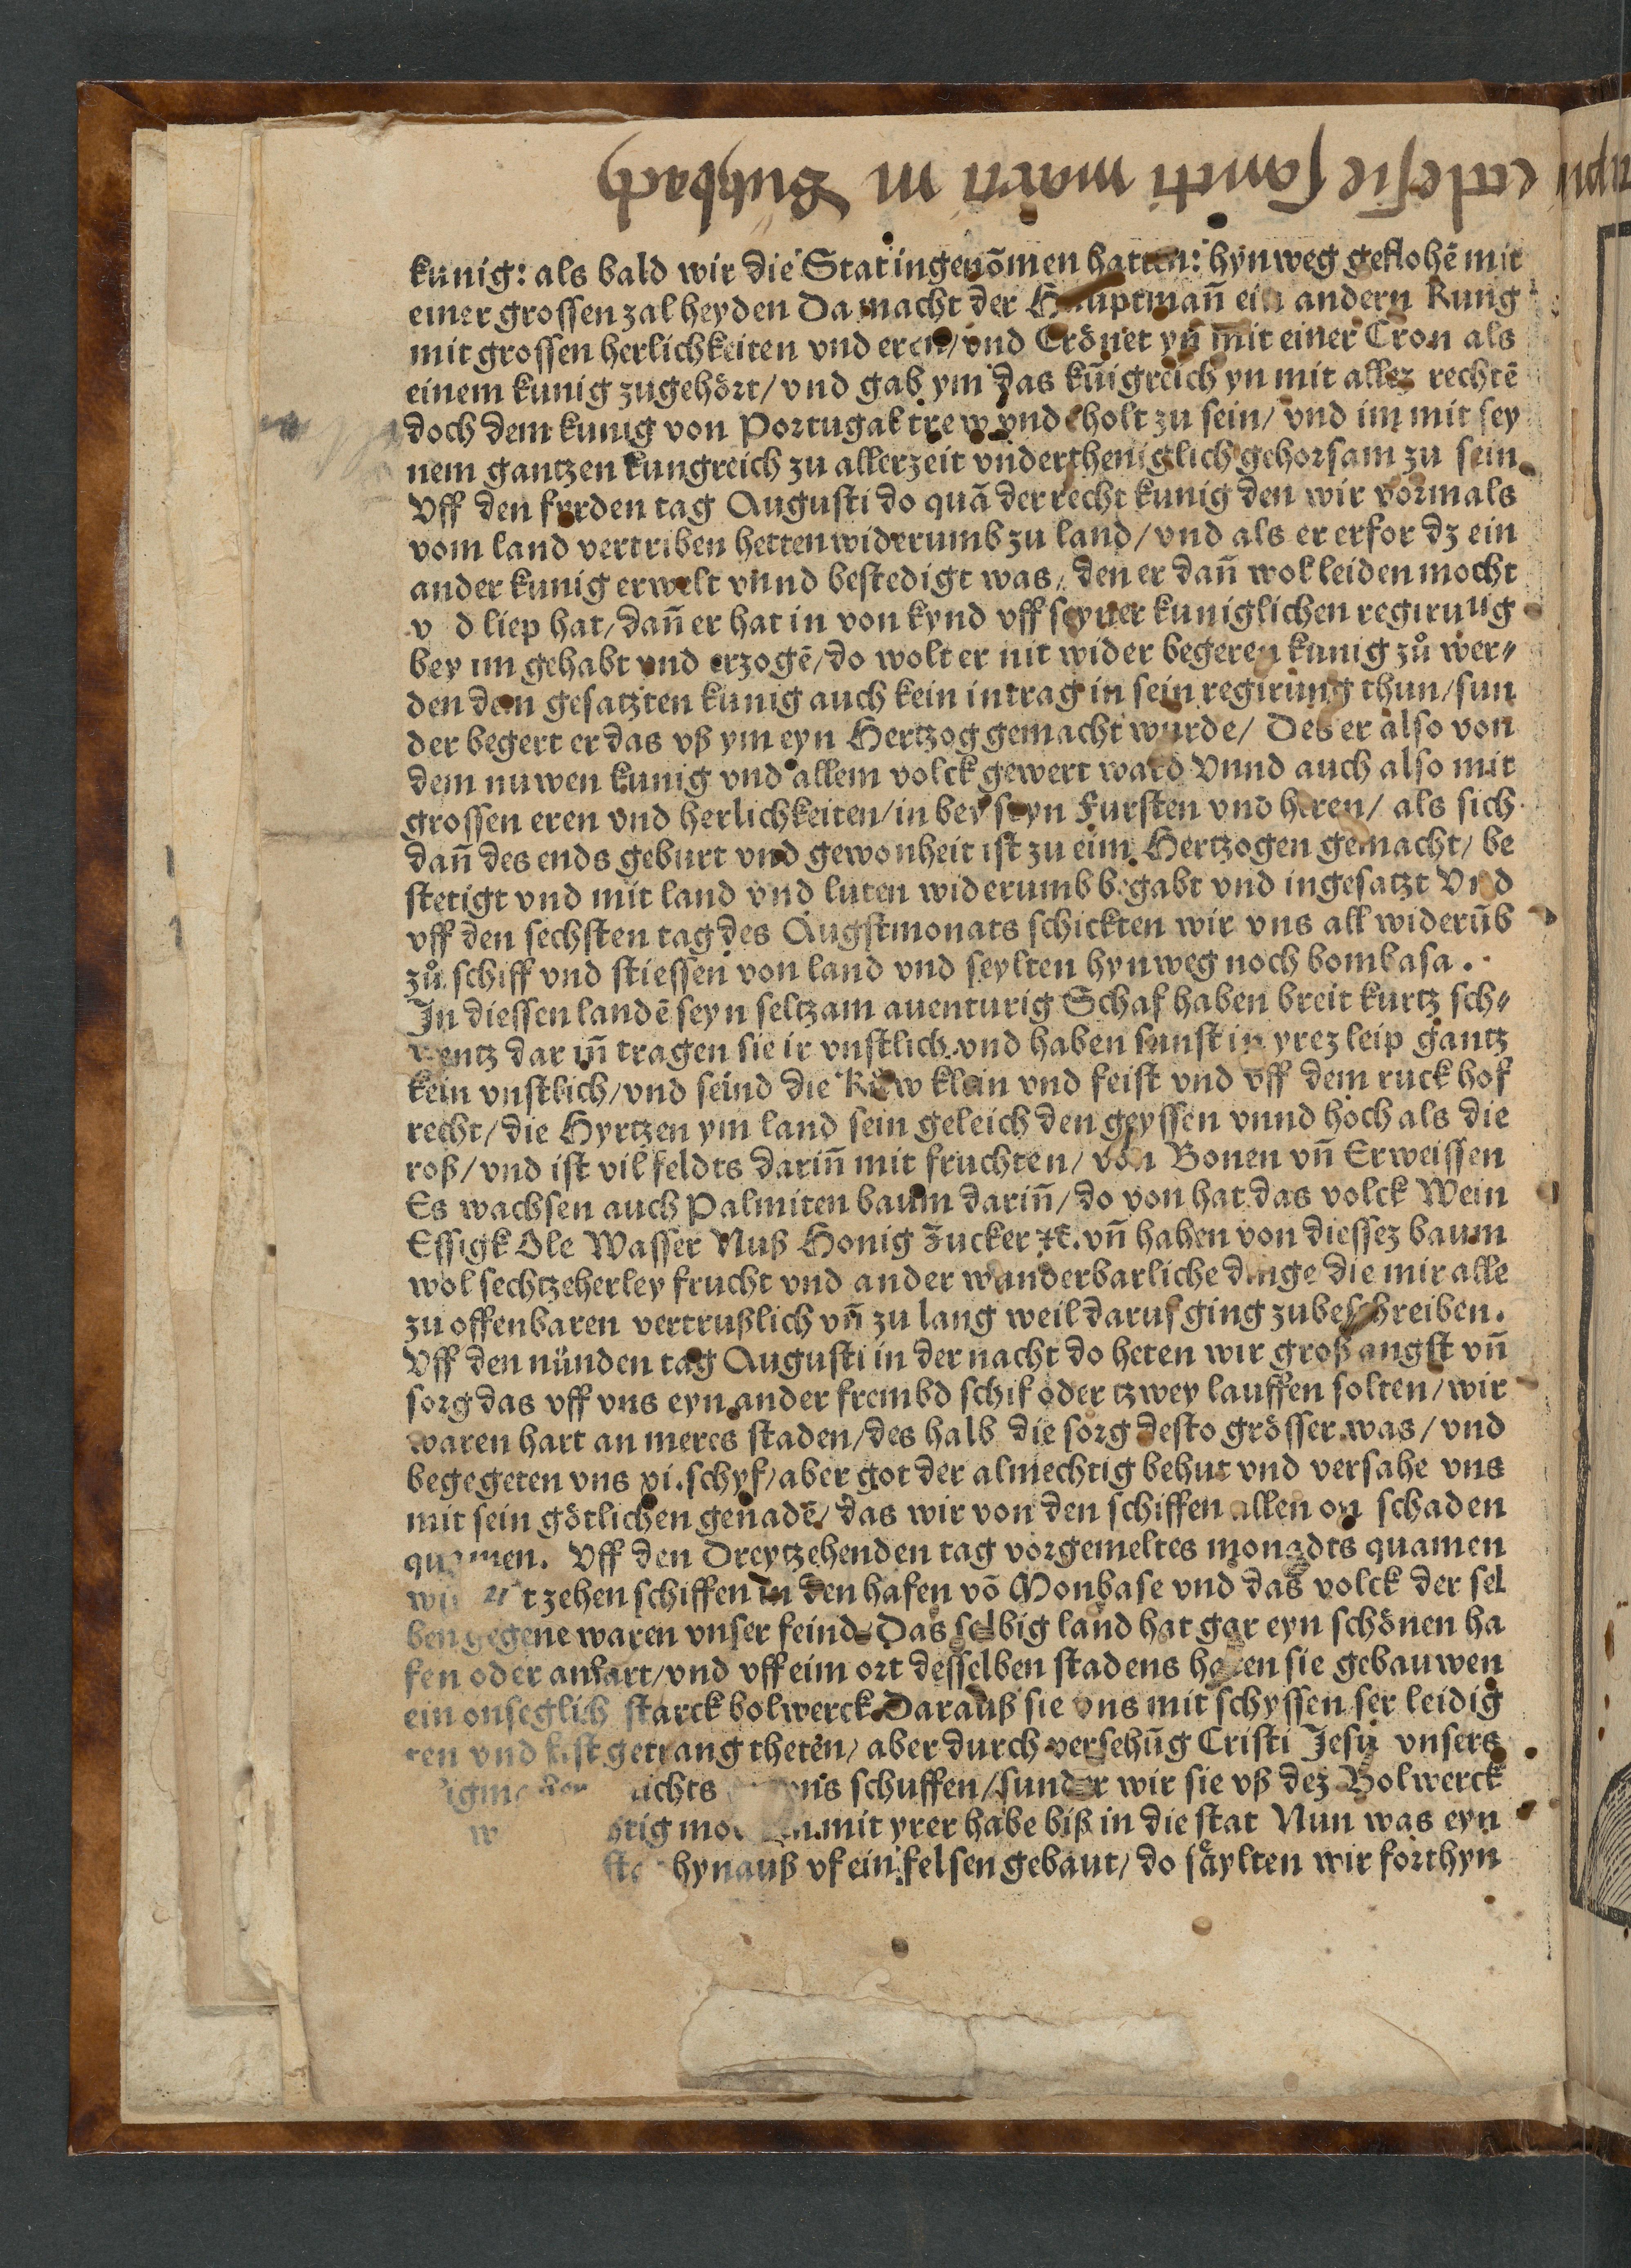 ecclesie sancti marci in Butzbach
kunig: als bald wir die Stat ingenõmen hatten: hynweg geflohẽ mit
einer grossen zal heyden Da macht der Hauptmañ ein andern Kung
mit grossen herlichkeiten vnd eren/ vnd Crönet yn mit einer Cron als
einem kunig zugehört/ vnd gab ym das kũigreich yn mit allez rechtẽ
doch dem kunig von Portugal trew vnd holt zu sein/ vnd im mit sey
nem gantzen kungreich zu allerzeit vndertheniglich gehorsam zu sein
Vff den firden tag Augusti do quã der recht kunig den wir vormals
vom land vertriben hetten widerumb zu land/ vnd als er erfor dz ein
ander kunig erwelt vnnd bestedigt was/ den er dañ wol leiden mocht
v d liep hat/ dañ er hat in von kynd vff seyner kuniglichen regirung
bey im gehabt vnd erzogẽ/ do wolt er nit wider begeren kunig zů wer⸗
den dem gesatzten kunig auch kein intrag in sein regirung thun/ sun
der begert er das vß ym eyn Hertzog gemacht wurde/ Des er also von
dem nuwen kunig vnd allem volck gewert ward Vnnd auch also mit
grossen eren vnd herlichkeiten/ in bey seyn Fursten vnd heren/ als sich
dañ des ends geburt vnd gewonheit ist zu eim Hertzogen gemacht/ be
stetigt vnd mit land vnd luten widerumb begabt vnd ingesatzt Vnd
vff den sechsten tag des Augstmonats schickten wir vns all widerũb
zů schiff vnd stiessen von land vnd seylten hynweg noch bombasa.
In diessen landẽ seyn seltzam auenturig Schaf haben breit kurtz sch⸗
wentz dar iñ tragen sie ir vnstlich vnd haben sunst in yrez leip gantz
kein vnstlich/ vnd seind die Kůw klein vnd feist vnd vff dem ruck hof
recht/ die Hyrtzen ym land sein geleich den geyssen vnnd hoch als die
roß/ vnd ist vil feldts dariñ mit fruchten/ von Bonen vñ Erweissen
Es wachsen auch Palmiten baum dariñ/ do von hat das volck Wein
Essigk Öle Wasser Nuß Honig Zucker ⁊c. vñ haben von diessez baum
wol sechtzeherley frucht vnd ander wunderbarliche dinge die mir alle
zu offenbaren vertrußlich vñ zu lang weil daruf ging zubeschreiben.
Vff den nünden tag Augusti in der nacht do heten wir groß angst vñ
sorg das vff vns eyn ander frembd schif oder tzwey lauffen solten/ wir
waren hart an meres staden/ des halb die sorg desto grösser was/ vnd
begegeten vns xi. schyf/ aber got der almechtig behut vnd versahe vns
mit sein götlichen genadẽ/ das wir von den schiffen allen on schaden
quamen. Vff den Dreytzehenden tag vorgemeltes monadts quamen
wir mit zehen schiffen in den hafen võ Monbase vnd das volck der sel
ben gegene waren vnser feind Das selbig land hat gar eyn schönen ha
fen oder anfart/ vnd vff eim ort desselben stadens haten sie gebauwen
ein onseglich starck bolwerck Darauß sie vns mit schyssen ser leidig
ren vnd lest getrang theten/ aber durch versehũg Cristi Jesu vnsers
nichts vns schuffen/ sunder wir sie vß dez Bolwerck
mit yrer habe biß in die stat Nun was eyn
hynauß vf ein felsen gebaut/ do säylten wir forthyn